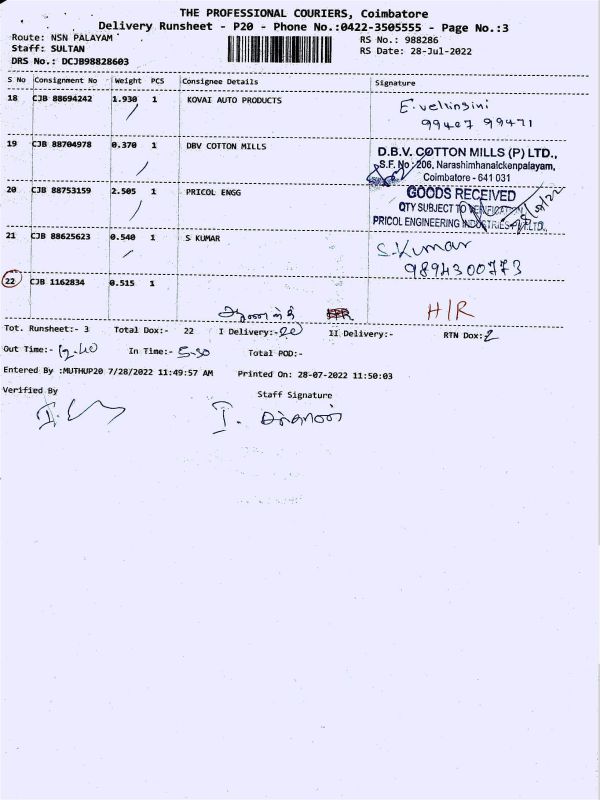 THE PROFESSIONAL COURIERS, Coimbatore
Delivery Runsheet - P20 - Phone No.:0422-3505555 - Page No.:3
Route: NSN PALAYAM
RS No.: 988286
Staff: SULTAN
RS Date: 28-Jul-2022
DRS No.: DCJB98828603
S No Consignment No Weight PCS Consignee Details Signature
18 CJB 88694242 1.930 1 KOVAI AUTO PRODUCTS
99407 99471
19 CJB 88704978 0.370 1 DBV COTTON MILLS
D.B.V. COTTON MILLS (P) LTD.,
S.F. No : 206, Narashimhanaickenpalayam,
Coimbatore - 641 031
20 CJB 88753159 2.505 1 PRICOL ENGG
GOODS RECEIVED
QTY SUBJECT TO VERIFICATION
PRICOL ENGINEERING INDUSTRIES (P) LTD.,
21 CJB 88625623 0.540 1 S KUMAR
S. Kumar
9894300773
22 CJB 1162834 0.515 1
H/R
Tot. Runsheet:- 3 Total Dox:- 22 I Delivery:- 20 II Delivery:- RTN Dox: 2
Out Time:- 12.40 In Time:- 5.30 Total POD:-
Entered By :MUTHUP20 7/28/2022 11:49:57 AM Printed On: 28-07-2022 11:50:03
Verified By
Staff Signature